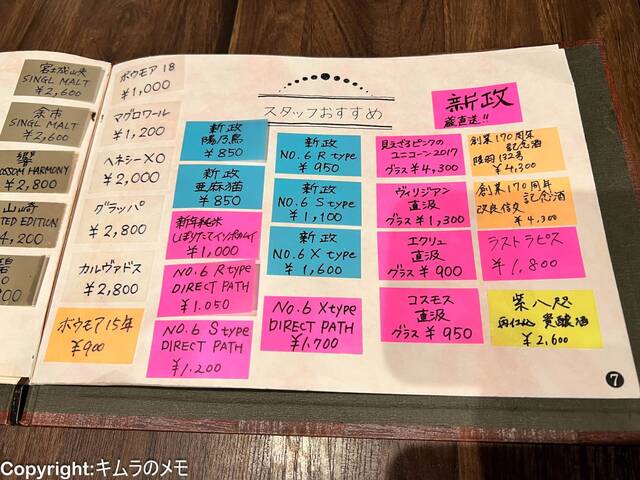 宮城峡
SINGL MALT
¥2,600
余市
SINGL MALT
¥2,600
響
OSSOM HARMONY
¥2,800
山崎
TED EDITION
4,200
碧
ボウモア 18
¥1,000
マグロワール
¥1,200
ヘネシーXO
¥2,000
グラッパ
¥2,800
カルヴァドス
¥2,800
ボウモア 15年
¥900
スタッフおすすめ
新政
蔵直送!!
新政
陽乃鳥
¥850
新政
亜麻猫
¥850
新年純米
¥1,000
NO.6 R type
DIRECT PATH
¥1.050
NO.6 S type
DIRECT PATH
¥1.200
新政
NO.6 R type
¥950
新政
NO.6 S type
¥1,100
新政
NO.6 X type
¥1,600
NO.6 X type
DIRECT PATH
¥1.700
見えざるピンクの
ユニコーン2017
グラス¥4,300
ヴィリジアン
直汲
グラス¥1,300
エクリュ
直汲
グラス ¥900
コスモス
直汲
グラス ¥950
創業170周年
記念酒
陸羽132号
¥4,300
創業170周年
記念酒
改良信交
¥4,300
ラストラピス
¥1,800
紫八咫
再仕込 貴醸酒
¥2,600
7
Copyright:キムラのメモ